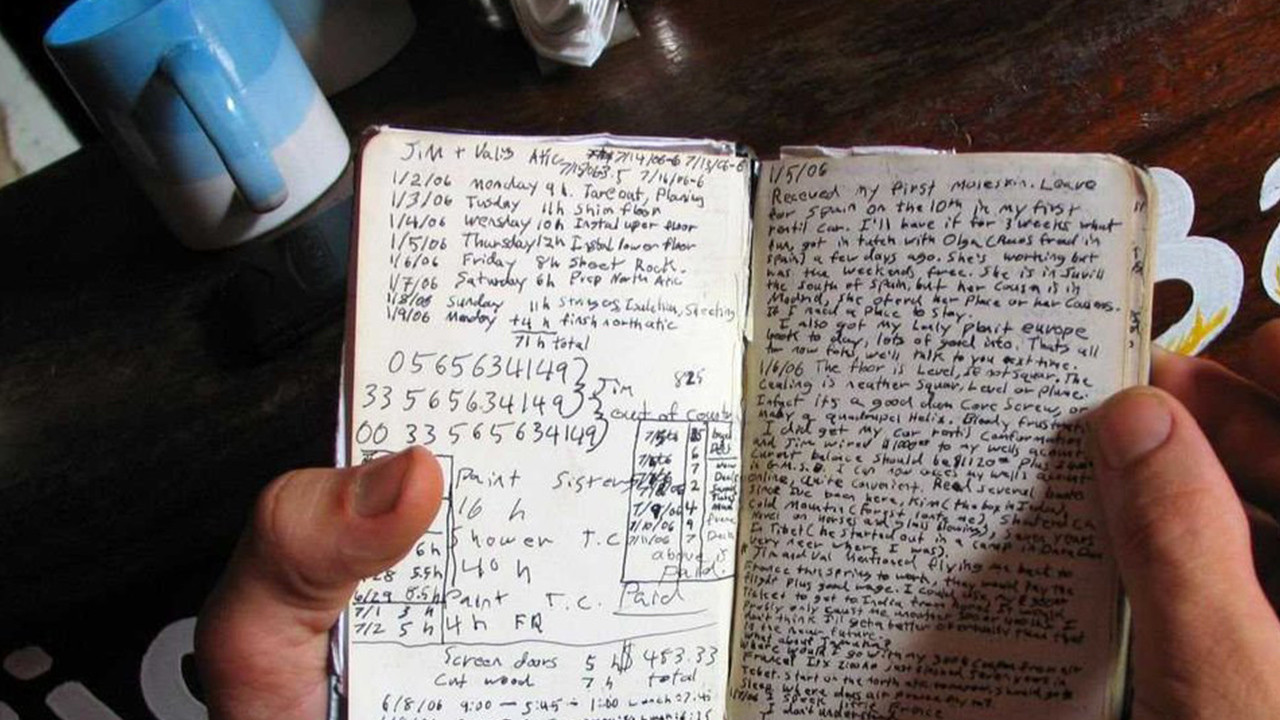 Jim + Valis Atic 7/14/06-6 7/15/06-6
7/15/06 3.5 7/16/06-6
1/2/06 Monday 9h. Tare out, Plowing
1/3/06 Tusday 11h Shim floor
1/4/06 Wensday 10h Instal uper floor
1/5/06 Thursday 12h Instal lower floor
1/6/06 Friday 8h Sheet Rock.
1/7/06 Saturday 6h Prep North Atic
1/8/06 Sunday 11h Stringers, Isulation, Sheeting
1/9/06 Monday +4h finsh north atic
71h total
0565634149)
33 565634149) Jim 825
00 33 565634149) out of country
Paint Sister
16 h
Shower T.C
40 h
Paint T.C.
4h FR
6h
5.5h
6/29 8.5h
7/1 3 h
7/2 5 h
7/9/06 4
7/10/06 9
7/11/06 7
above is
paid.
Paid
Screen doors 5 h $ 453.33
Cut wood 7 h total
6/8/06 9:00 - 5:45 - 1:00 Lunch = 7.45
1/5/06
Receved my first Moleskin. Leave
for Spain on the 10th in my first
rentil car. I'll have it for 3 weeks what
fun, got in tutch with Olga (Raes fraind in
Spain) a few days ago. She's working but
has the weekends free. She is in Sivill
the south of Spain, but her Cousin is in
Madrid, she oferd her Place or her Cousens.
If I need a place to stay.
I also got my Lonly planit europe
book to day, lots of good info. Thats all
for now fokes, we'll talk to you next time.
1/6/06 The floor is Level, if not Squar. The
Cealing is neather Squar, Level or Plune.
Infact its a good dam Core Screw, or
maby a quadrupel Helix. Bloody frustrat
I did get my Car rentil Conformation
and Jim wired $1000 to my wells acount
Curent balance should be $1120 Plus
in G.M.S.B. I can now acces my wells acount
online, quite convenient. Read Several books
since I've been here, Kim (the box in India),
Cold Mountin (forest
Novel on horses and glass blowing), Seven years
in Tibet (he started out in a camp in Dara Dun
very neer where I was).
Jim and Val mentioned flying me back to
France this spring to work, they would pay the
flight Plus good wage. I could use my
ticket to get to India from
Probly only
don't think I'll get a better oportunity than that
in the near future.
What about
Where would I go with my 300 coupon from air
France? Its
Tebet. Start on the north atic tomorow, should go
Sleep. Where does air France fly
1/7/06 I speek little France
I don't understand